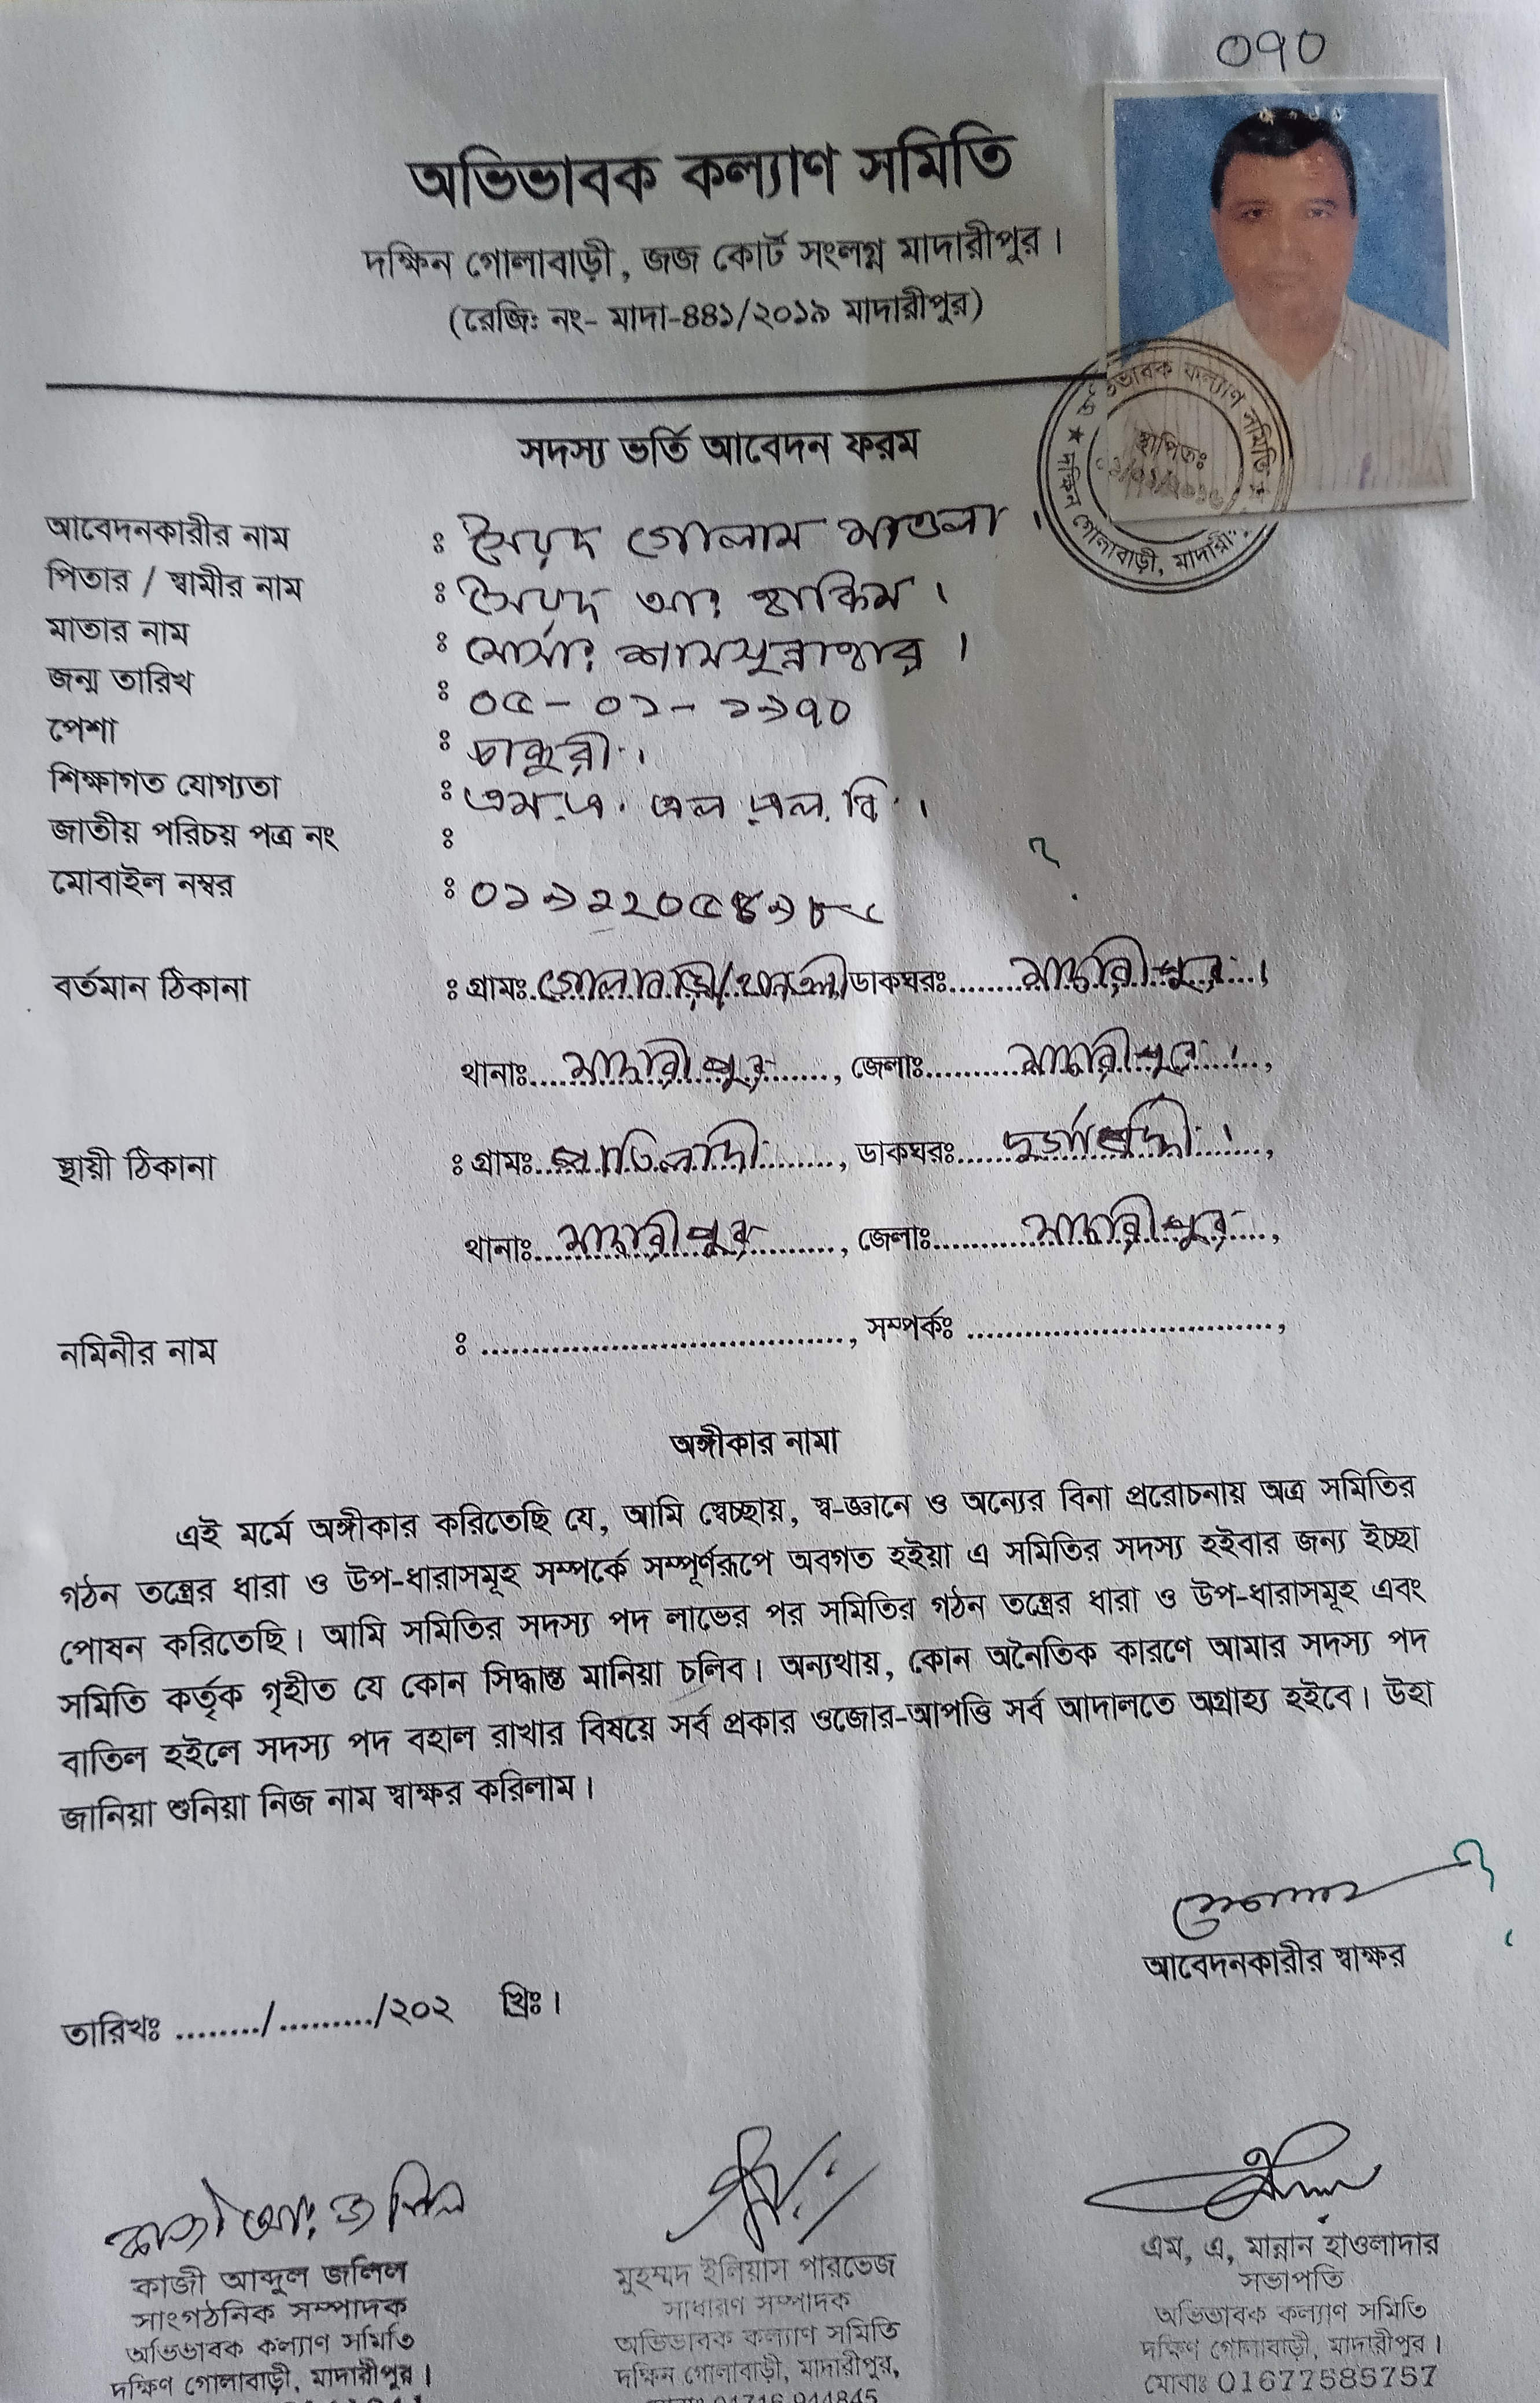 ০৭০
অভিভাবক কল্যাণ সমিতি
দক্ষিন গোলাবাড়ী, জজ কোর্ট সংলগ্ন মাদারীপুর।
(রেজিঃ নং- মাদা-৪৪১/২০১৯ মাদারীপুর)
অভিভাবক কল্যাণ সমিতি
স্থাপিতঃ
দক্ষিন গোলাবাড়ী, মাদারী
সদস্য ভর্তি আবেদন ফরম
আবেদনকারীর নাম : সৈয়দ গোলাম মাওলা।
পিতার / স্বামীর নাম : সৈয়দ আঃ হাকিম।
মাতার নাম : মোসাঃ শামসুন্নাহার।
জন্ম তারিখ : ০৫-০১-১৯৭০
পেশা : চাকুরী।
শিক্ষাগত যোগ্যতা : এম.এ. এল.এল.বি।
জাতীয় পরিচয় পত্র নং : ?
মোবাইল নম্বর :
বর্তমান ঠিকানা : গ্রামঃ ডাকঘরঃ মাদারীপুর।
থানাঃ মাদারীপুর, জেলাঃ মাদারীপুর।,
স্থায়ী ঠিকানা : গ্রামঃ পাতিলাদী, ডাকঘরঃ দুর্গাবর্দ্দী।,
থানাঃ মাদারীপুর, জেলাঃ মাদারীপুর,
নমিনীর নাম : ..................................., সম্পর্কঃ ..............................,
অঙ্গীকার নামা
এই মর্মে অঙ্গীকার করিতেছি যে, আমি স্বেচ্ছায়, স্ব-জ্ঞানে ও অন্যের বিনা প্ররোচনায় অত্র সমিতির
গঠন তন্ত্রের ধারা ও উপ-ধারাসমূহ সম্পর্কে সম্পূর্ণরূপে অবগত হইয়া এ সমিতির সদস্য হইবার জন্য ইচ্ছা
পোষন করিতেছি। আমি সমিতির সদস্য পদ লাভের পর সমিতির গঠন তন্ত্রের ধারা ও উপ-ধারাসমূহ এবং
সমিতি কর্তৃক গৃহীত যে কোন সিদ্ধান্ত মানিয়া চলিব। অন্যথায়, কোন অনৈতিক কারণে আমার সদস্য পদ
বাতিল হইলে সদস্য পদ বহাল রাখার বিষয়ে সর্ব প্রকার ওজোর-আপত্তি সর্ব আদালতে অগ্রাহ্য হইবে। উহা
জানিয়া শুনিয়া নিজ নাম স্বাক্ষর করিলাম।
আবেদনকারীর স্বাক্ষর
তারিখঃ ......../........./২০২ খ্রিঃ।
কাজী আঃ জলিল
কাজী আব্দুল জলিল
সাংগঠনিক সম্পাদক
অভিভাবক কল্যাণ সমিতি
দক্ষিণ গোলাবাড়ী, মাদারীপুর।
মুহম্মদ ইলিয়াস পারভেজ
সাধারণ সম্পাদক
অভিভাবক কল্যাণ সমিতি
দক্ষিন গোলাবাড়ী, মাদারীপুর,
মোবাঃ 01716 944845
এম, এ, মান্নান হাওলাদার
সভাপতি
অভিভাবক কল্যাণ সমিতি
দক্ষিণ গোলাবাড়ী, মাদারীপুর।
মোবাঃ 01677585757